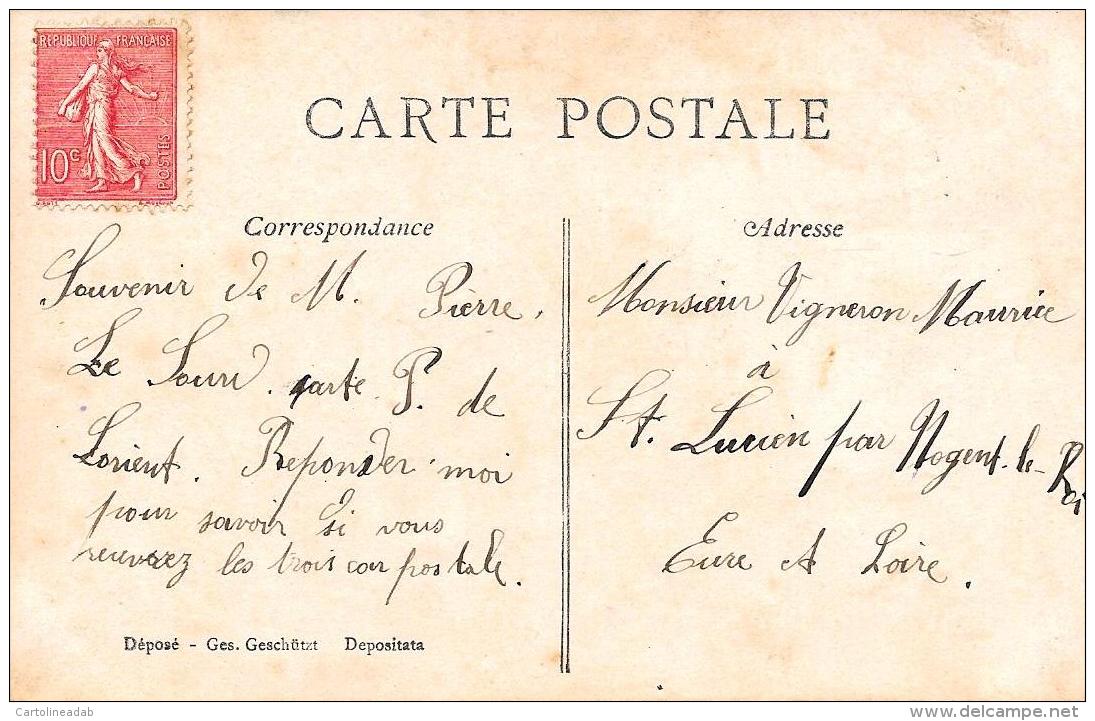 REPUBLIQUE FRANÇAISE
10c
POSTES
CARTE POSTALE
Correspondance
Souvenir de M. Pierre,
Le Sourd. carte P. de
Lorient. Reponder moi
pour savoir si vous
recuverez les trois car postale.
Déposé - Ges. Geschützt Depositata
Adresse
Monsieur Vigneron Maurice
à
St. Lucien par Nogent-le-Roi
Eure A Loire.
Cartolineadab
www.delcampe.net